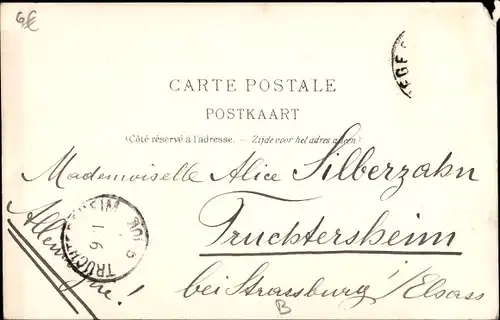 CARTE POSTALE
POSTKAART
(Côté réservé à l'adresse. — Zijde voor het adres alleen.)
Mademoiselle Alice Silberzahn
Truchtersheim
bei Strassburg i/Elsass
Allemagne!
TRUCHTERSHEIM
1 6
B